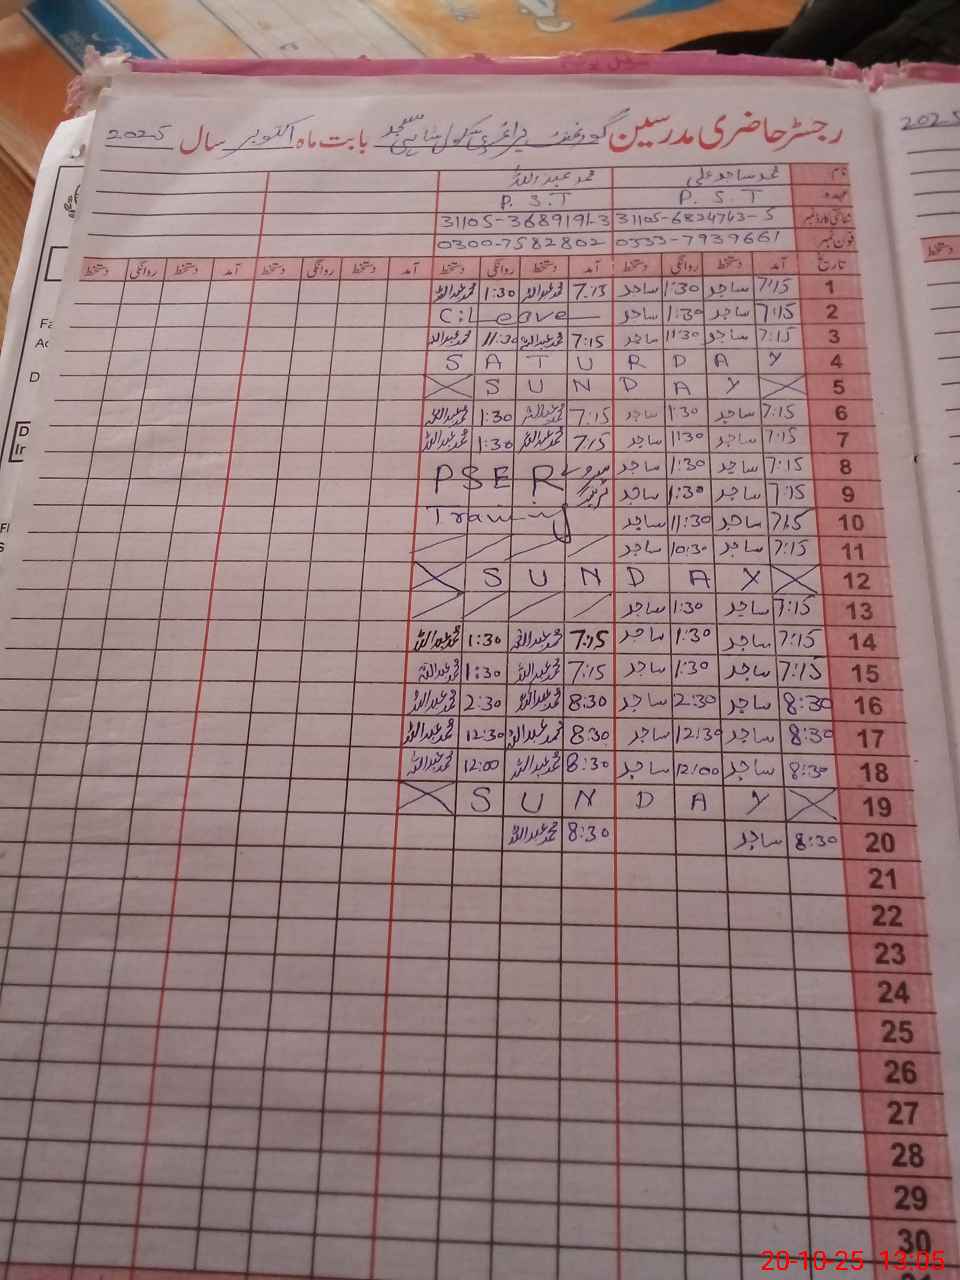 رجسٹر حاضری مدرسین گورنمنٹ پرائمری سکول بابت ماہ اکتوبر سال 2025
نام محمد ساجد علی محمد عبداللہ
عہدہ P.S.T P.S.T
شناختی کارڈ نمبر 31105-6824743-5 31105-3689191-3
فون نمبر 0333-7939661 0300-7582802
تاریخ آمد دستخط روانگی دستخط آمد دستخط روانگی دستخط آمد دستخط روانگی دستخط آمد دستخط روانگی دستخط
1 7:15 ساجد 1:30 ساجد 7:15 محمد عبداللہ 1:30 محمد عبداللہ
2 7:15 ساجد 1:30 ساجد C:Leave
3 7:15 ساجد 11:30 ساجد 7:15 محمد عبداللہ 11:30 محمد عبداللہ
4 SATURDAY
5 SUNDAY
6 7:15 ساجد 1:30 ساجد 7:15 محمد عبداللہ 1:30 محمد عبداللہ
7 7:15 ساجد 1:30 ساجد 7:15 محمد عبداللہ 1:30 محمد عبداللہ
8 7:15 ساجد 1:30 ساجد PSER سروے
9 7:15 ساجد 1:30 ساجد ٹریننگ
10 7:15 ساجد 11:30 ساجد Training
11 7:15 ساجد 10:30 ساجد
12 SUNDAY
13 7:15 ساجد 1:30 ساجد
14 7:15 ساجد 1:30 ساجد 7:15 محمد عبداللہ 1:30 محمد عبداللہ
15 7:15 ساجد 1:30 ساجد 7:15 محمد عبداللہ 1:30 محمد عبداللہ
16 8:30 ساجد 2:30 ساجد 8:30 محمد عبداللہ 2:30 محمد عبداللہ
17 8:30 ساجد 12:30 ساجد 8:30 محمد عبداللہ 12:30 محمد عبداللہ
18 8:30 ساجد 12:00 ساجد 8:30 محمد عبداللہ 12:00 محمد عبداللہ
19 SUNDAY
20 8:30 ساجد 8:30 محمد عبداللہ
21
22
23
24
25
26
27
28
29
30
2025
دستخط
20-10-25 13:05